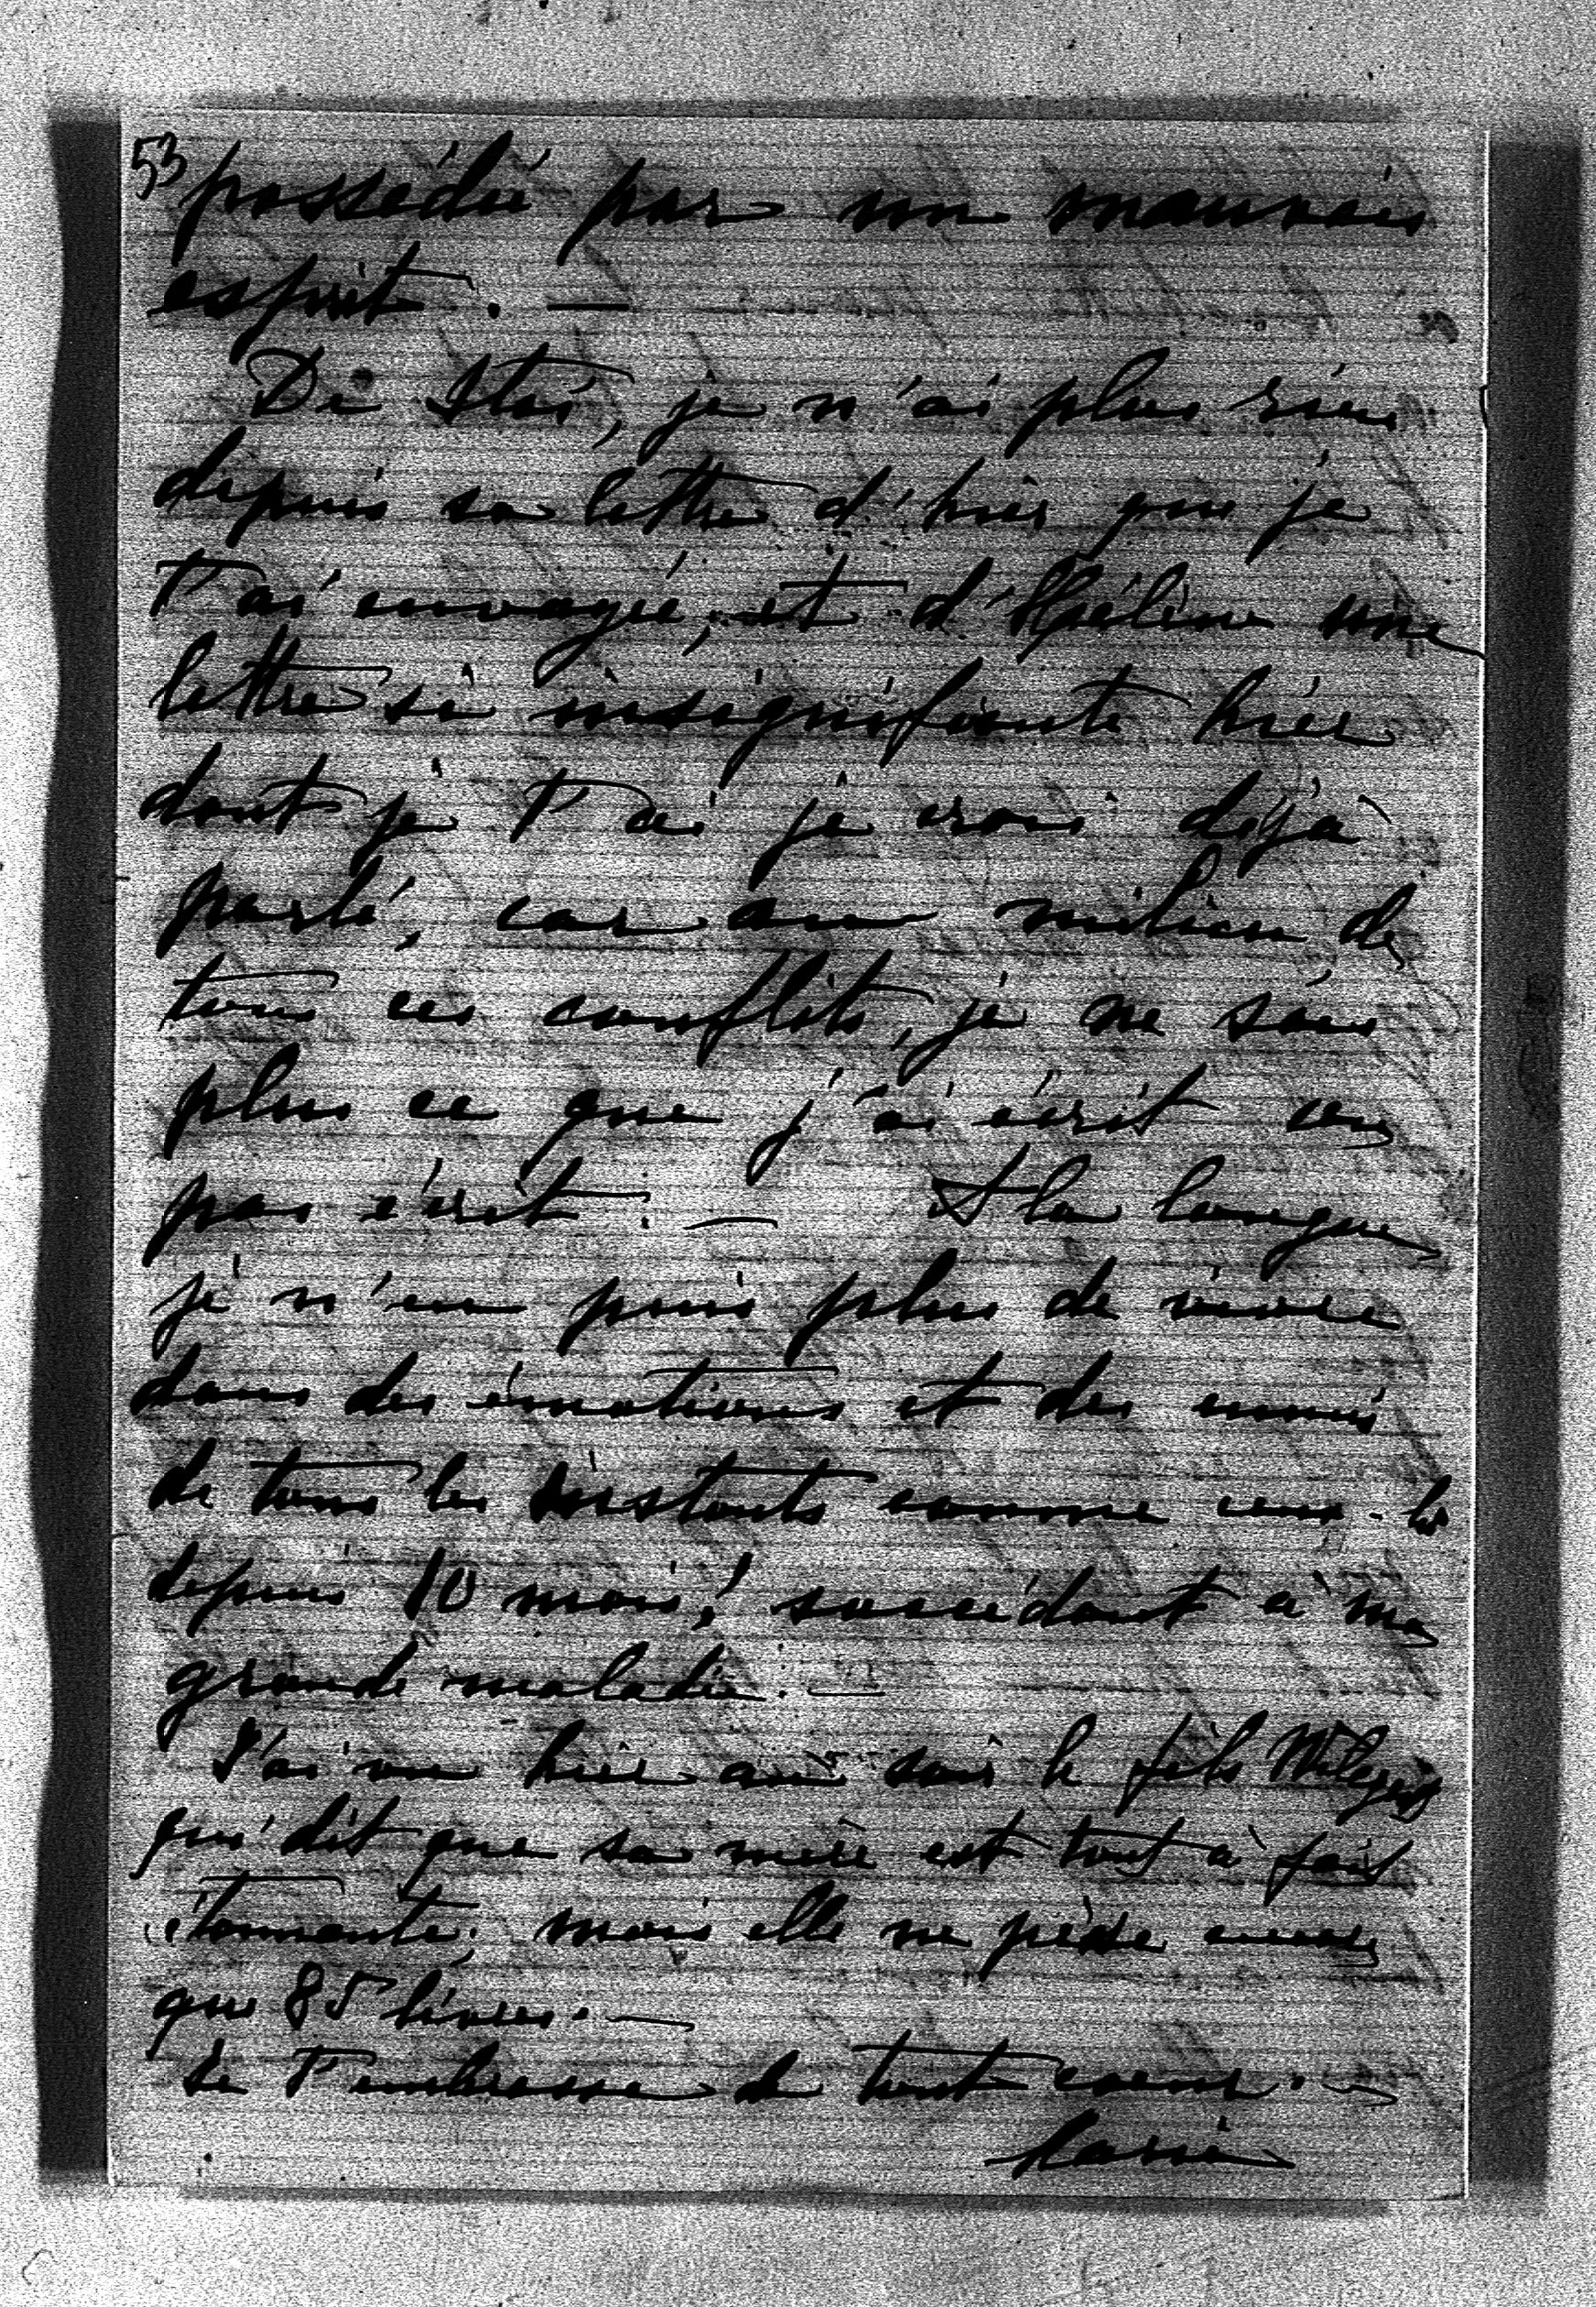 53
possédée par un mauvais
esprit. —
De Stoï, je n'ai plus rien
depuis sa lettre d'hier que je
t'ai envoyée; et d'Hélène une
lettre si insignifiante hier
dont je t'ai je crois déjà
parlé, car au milieu de
tous ces conflits, je ne sais
plus ce que j'ai écrit ou
pas écrit. — A la longue
je n'en puis plus de vivre
dans des émotions et des ennuis
de tous les instants comme ceux-là
depuis 10 mois! succédant à ma
grande maladie. —
J'ai vu hier au soir le fils
qui dit que sa mère est tout à fait
étonnante; mais elle ne pèse encore
que 85 livres. —
Je t'embrasse de tout coeur. —